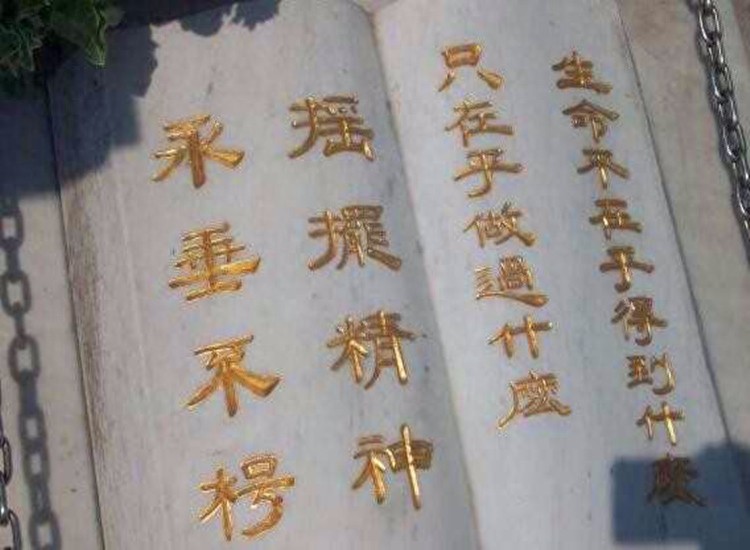 生命不在于得到什麼
只在乎做過什麼
摇擺精神
永垂不枵